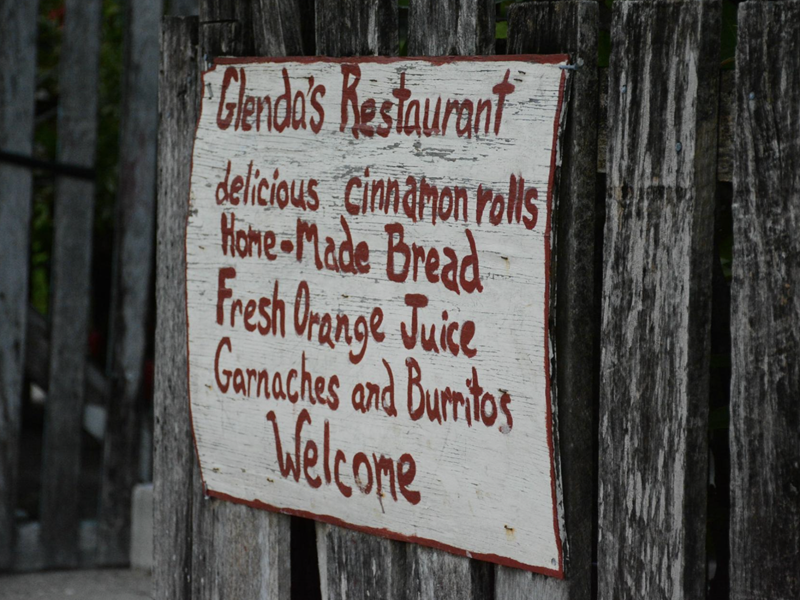 Glenda's Restaurant
delicious cinnamon rolls
Home-Made Bread
Fresh Orange Juice
Garnaches and Burritos
Welcome